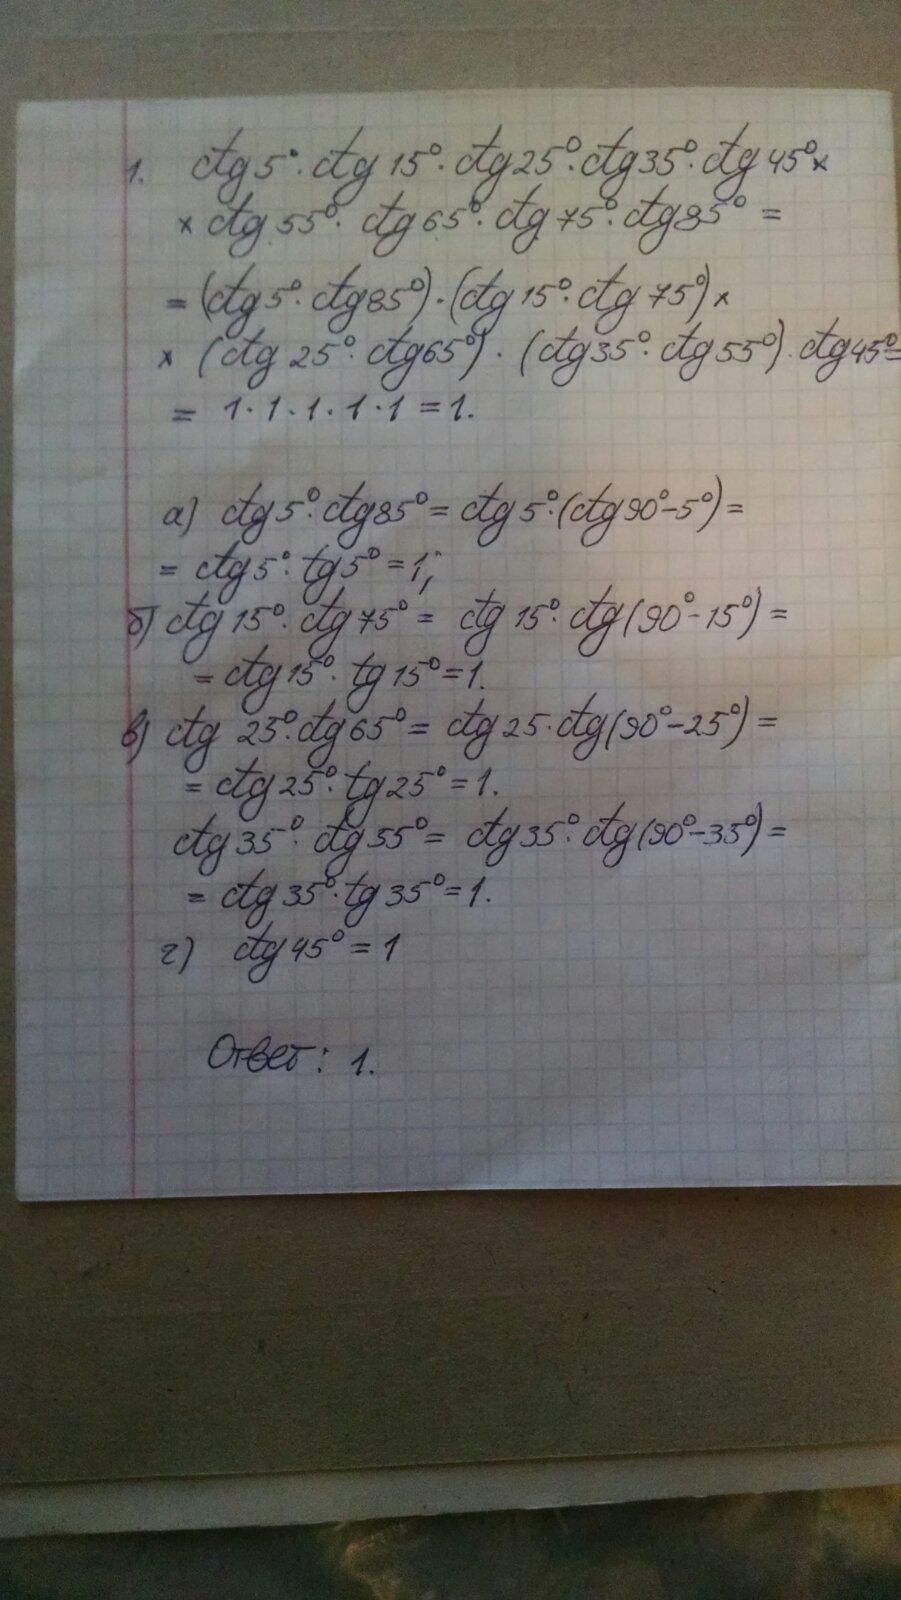 1. ctg 5° · ctg 15° · ctg 25° · ctg 35° · ctg 45° ×
× ctg 55° · ctg 65° · ctg 75° · ctg 85° =
= (ctg 5° · ctg 85°) · (ctg 15° · ctg 75°) ×
× (ctg 25° · ctg 65°) · (ctg 35° · ctg 55°) · ctg 45° =
= 1 · 1 · 1 · 1 · 1 = 1.
а) ctg 5° · ctg 85° = ctg 5° · (ctg 90° - 5°) =
= ctg 5° · tg 5° = 1;
б) ctg 15° · ctg 75° = ctg 15° · ctg (90° - 15°) =
= ctg 15° · tg 15° = 1.
в) ctg 25° · ctg 65° = ctg 25 · ctg (90° - 25°) =
= ctg 25° · tg 25° = 1.
ctg 35° · ctg 55° = ctg 35° · ctg (90° - 35°) =
= ctg 35° · tg 35° = 1.
г) ctg 45° = 1
Ответ: 1.